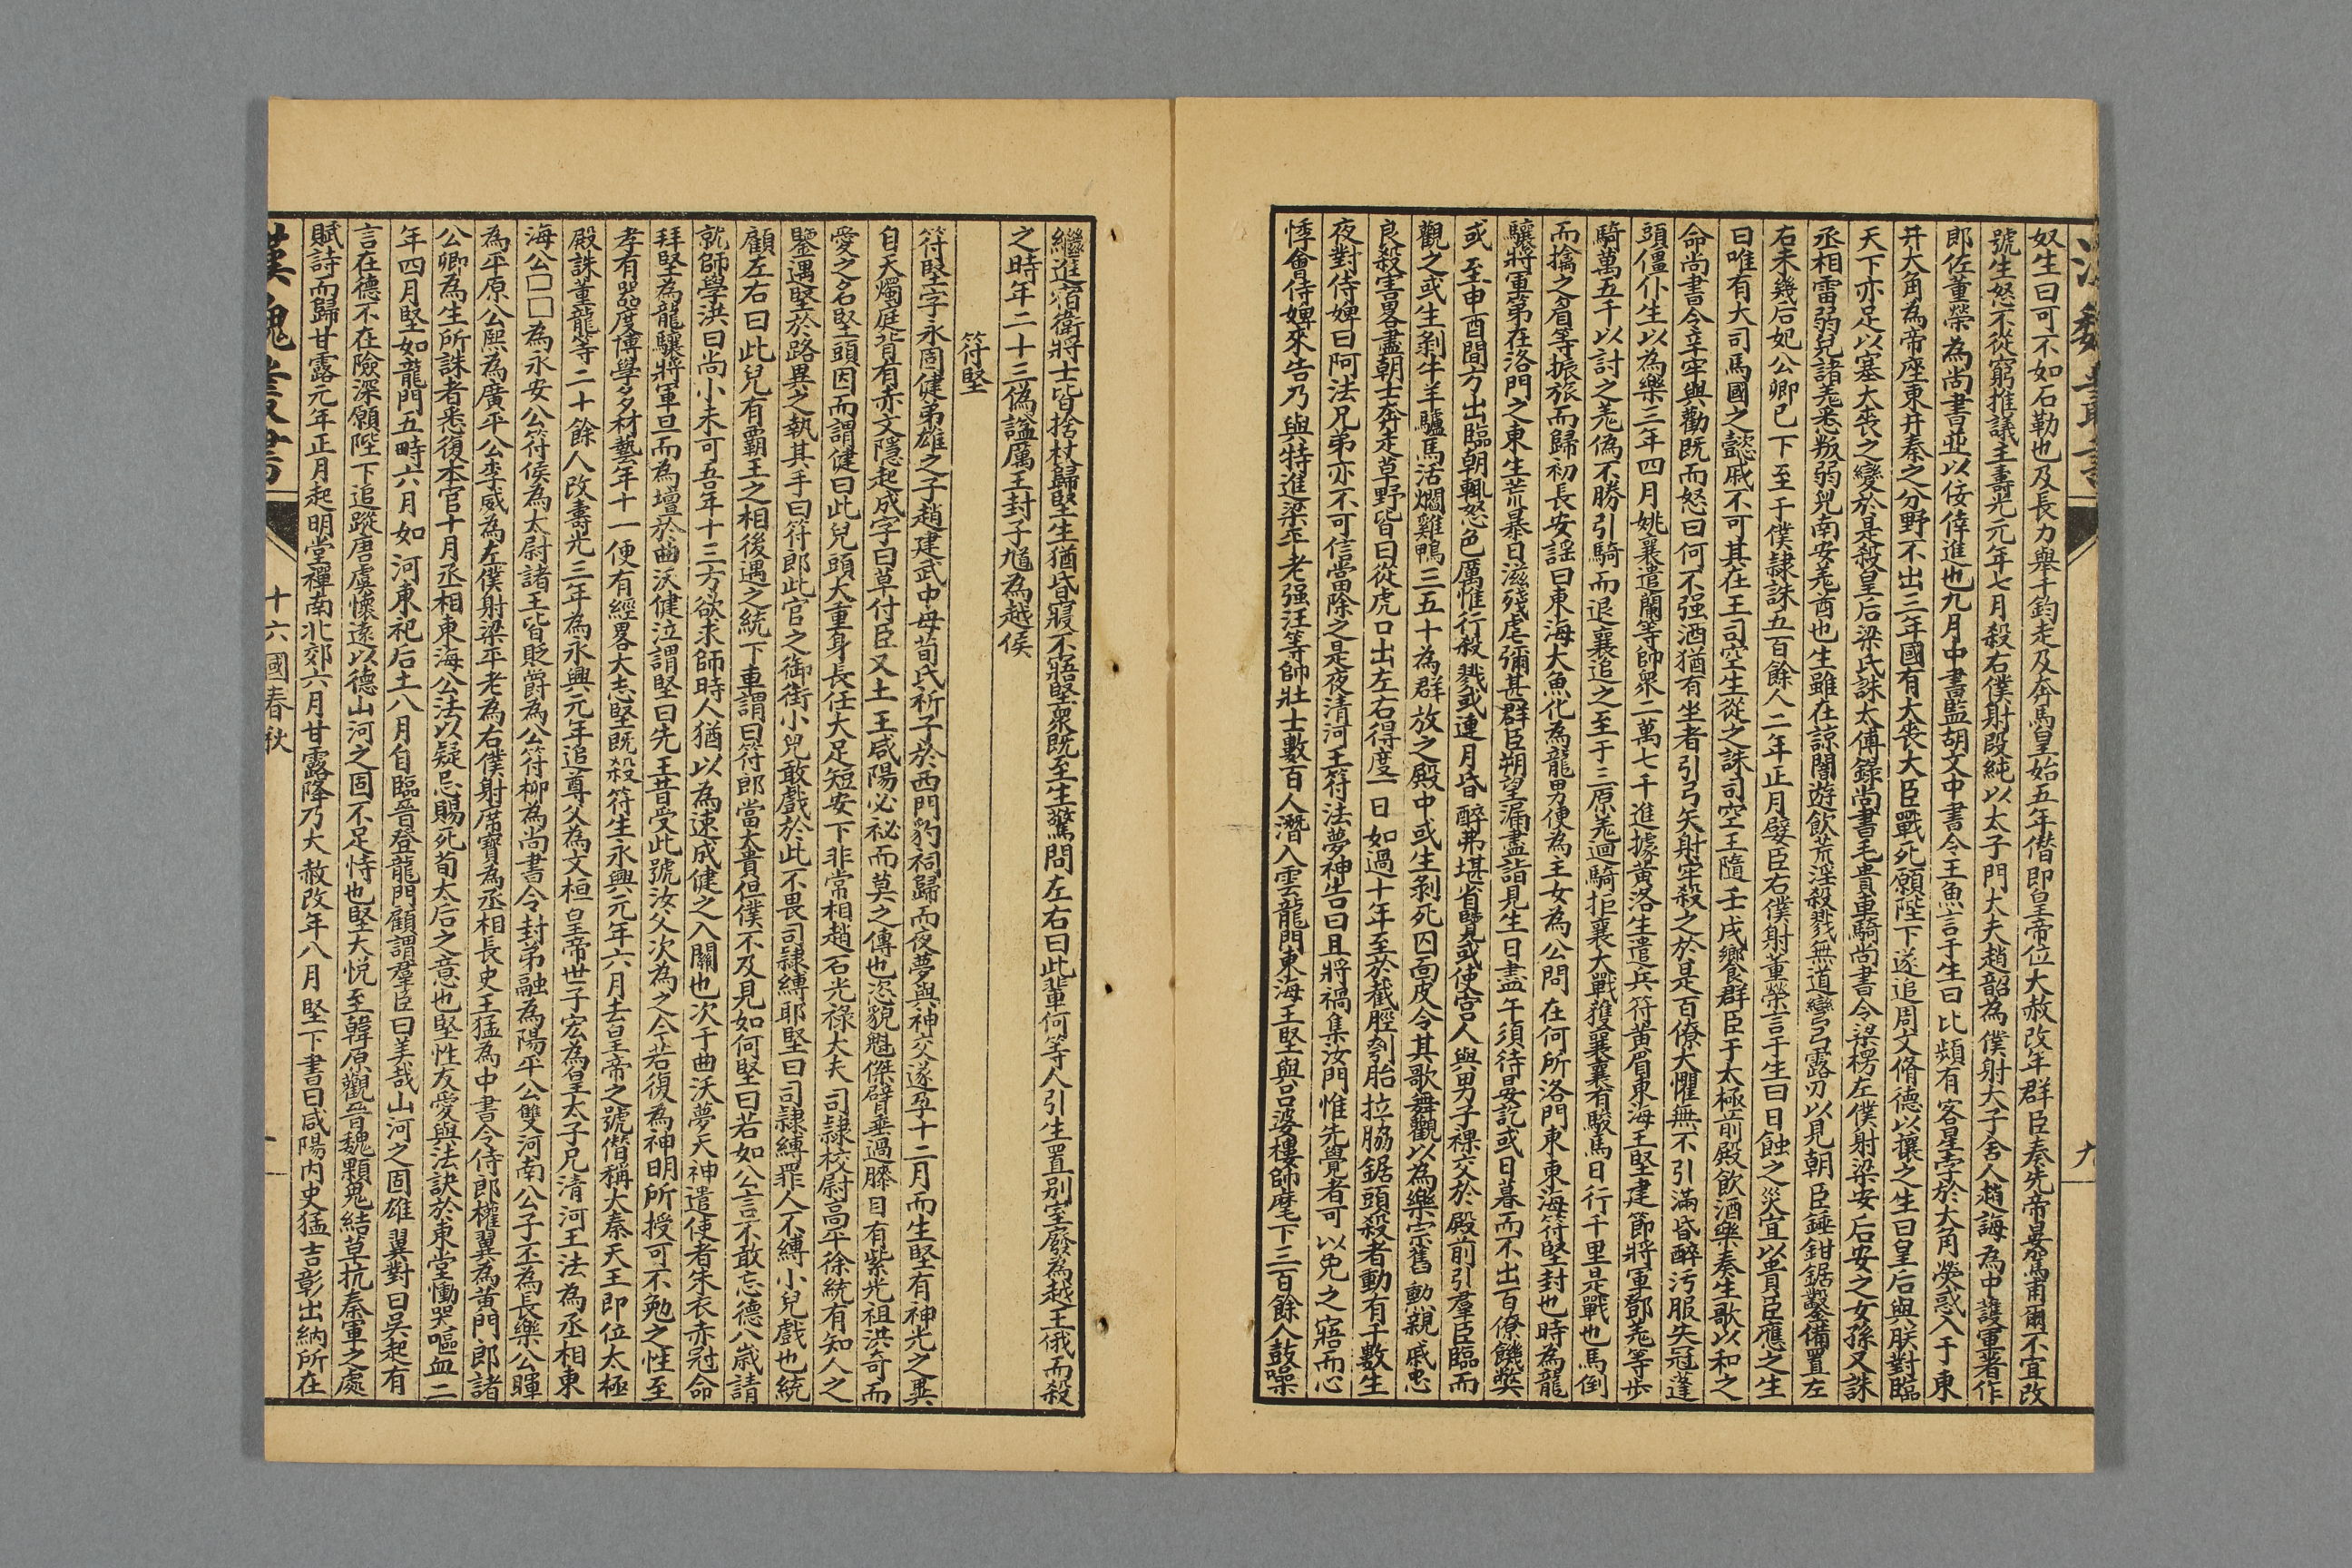 漢魏叢書
九
奴生曰可不如石勒也及長力舉千鈞走及奔馬皇始五年僭即皇帝位大赦改年群臣奏先帝晏駕甫爾不宜改
號生怒不從窮推議主壽光元年七月殺右僕射段純以太子門大夫趙韶為僕射太子舍人趙誨為中護軍著作
郎佐董榮為尚書並以佞倖進也九月中書監胡文中書令王魚言于生曰比頻有客星孛於大角熒惑入于東
井大角為帝座東井秦之分野不出三年國有大喪大臣戰死願陛下遂追周文脩德以攘之生曰皇后與朕對臨
天下亦足以塞大喪之變於是殺皇后梁氏誅太傅錄尚書毛貴車騎尚書令梁楞左僕射梁安后安之女孫又誅
丞相雷弱兒諸羌悉叛弱兒南安羌酋也生雖在諒闇遊飲荒淫殺戮無道彎弓露刃以見朝臣錘鉗鋸鑿備置左
右未幾后妃公卿已下至于僕隸誅五百餘人二年正月嬖臣右僕射董榮言于生曰日蝕之災宜以貴臣應之生
曰唯有大司馬國之懿戚不可其在王司空生從之誅司空王隨壬戌饗群臣于太極前殿飲酒樂奏生歌以和之
命尚書令辛牢與勸既而怒曰何不强酒猶有坐者引弓矢射牢殺之於是百僚大懼無不引滿昏醉污服失冠蓬
頭僵仆生以為樂三年四月姚襄遣蘭等帥衆二萬七千進據黃洛生遣兵符黃眉東海王堅建節將軍鄧羌等步
騎萬五千以討之羌偽不勝引騎而退襄追之至于三原羌迴騎拒襄大戰獲襄襄有駿馬日行千里是戰也馬倒
而擒之眉等振旅而歸初長安謠曰東海大魚化為龍男便為王女為公問在何所洛門東東海符堅封也時為龍
驤將軍第在洛門之東生荒暴日滋殘虐彌甚群臣朔望漏盡詣見生日盡午須待晏訖或日暮而不出百僚饑弊
或至申酉間方出臨朝輒怒色厲惟行殺戮或連月昏醉弗堪省覽或使宮人與男子裸交於殿前引羣臣臨而
觀之或生剥牛羊驢馬活爛雞鴨三五十為群放之殿中或生剥死囚面皮令其歌舞觀以為樂宗舊勳親戚忠
良殺害畧盡朝士奔走草野皆曰從虎口出左右得度一日如過十年至於截脛刳胎拉脇鋸頭殺者動有千數生
夜對侍婢曰阿法兄弟亦不可信當除之是夜清河王符法夢神告曰且將禍集汝門惟先覺者可以免之寤而心
悸會侍婢來告乃與特進梁平老强汪等帥壯士數百人潛入雲龍門東海王堅與吕婆樓帥麾下三百餘人鼓噪
繼進宿衛將士皆捨杖歸堅生猶昏寢不寤堅衆既至生驚問左右曰此輩何等人引生置别室廢為越王俄而殺
之時年二十三偽謚厲王封子馗為越侯
符堅
符堅字永固健弟雄之子趙建武中母荀氏祈子於西門豹祠歸而夜夢與神交遂孕十二月而生堅有神光之異
自天燭庭背有赤文隱起成字曰草付臣又土王咸陽必祕而莫之傳也姿貌魁傑臂垂過膝目有紫光祖洪奇而
愛之名堅頭因而謂健曰此兒頭大重身長任大足短安下非常相趙石光禄大夫司隷校尉高平徐統有知人之
鑒遇堅於路異之執其手曰符郎此官之御街小兒敢戲於此不畏司隸縛耶堅曰司隷縛罪人不縛小兒戲也統
顧左右曰此兒有霸王之相後遇之統下車謂曰符郎當太貴但僕不及見如何堅曰若如公言不敢忘德八歲請
就師學洪曰尚小未可吾年十三方欲求師時人猶以為速成健之入關也次于曲沃夢天神遣使者朱衣赤冠命
拜堅為龍驤將軍旦而為壇於曲沃健泣謂堅曰先王昔受此號汝父次為之今若復為神明所授可不勉之性至
孝有器度博學多材藝年十一便有經畧大志堅既殺符生永興元年六月去皇帝之號僭稱大秦天王即位太極
殿誅董龍等二十餘人改壽光三年為永興元年追尊父為文桓皇帝世子宏為皇太子兄清河王法為丞相東
海公□□為永安公符侯為太尉諸王皆貶爵為公符柳為尚書令封弟融為陽平公雙河南公子丕為長樂公暉
為平原公熙為廣平公李威為左僕射梁平老為右僕射席寶為丞相長史王猛為中書令侍郎權翼為黃門郎諸
公卿為生所誅者悉復本官十月丞相東海公法以疑忌賜死荀太后之意也堅性友愛與法訣於東堂慟哭嘔血二
年四月堅如龍門五畤六月如河東祀后土八月自臨晉登龍門顧謂羣臣曰美哉山河之固雄翼對曰吴起有
言在德不在險深願陛下追蹤唐虞懷遠以德山河之固不足恃也堅大悦至韓原觀晉魏顆鬼結草抗秦軍之處
賦詩而歸甘露元年正月起明堂禪南北郊六月甘露降乃大赦改年八月堅下書曰咸陽内史猛言彰出納所在
漢魏叢書
十六國春秋